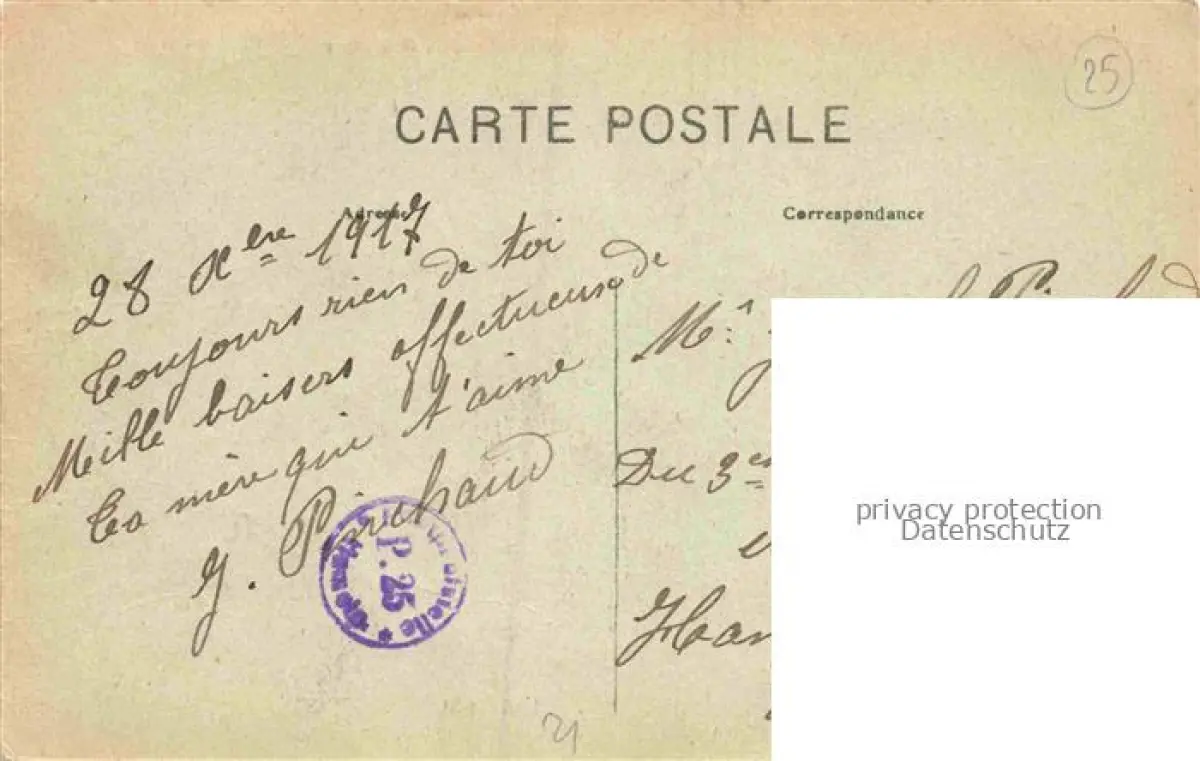 25
CARTE POSTALE
Adresse
Correspondance
28 Xbre 1917
Toujours rien de toi
Mille baisers affectueux de
Ta mère qui t'aime
J. Pinchaud
Mr.
Du 3e
Han
P. 25
privacy protection
Datenschutz
21